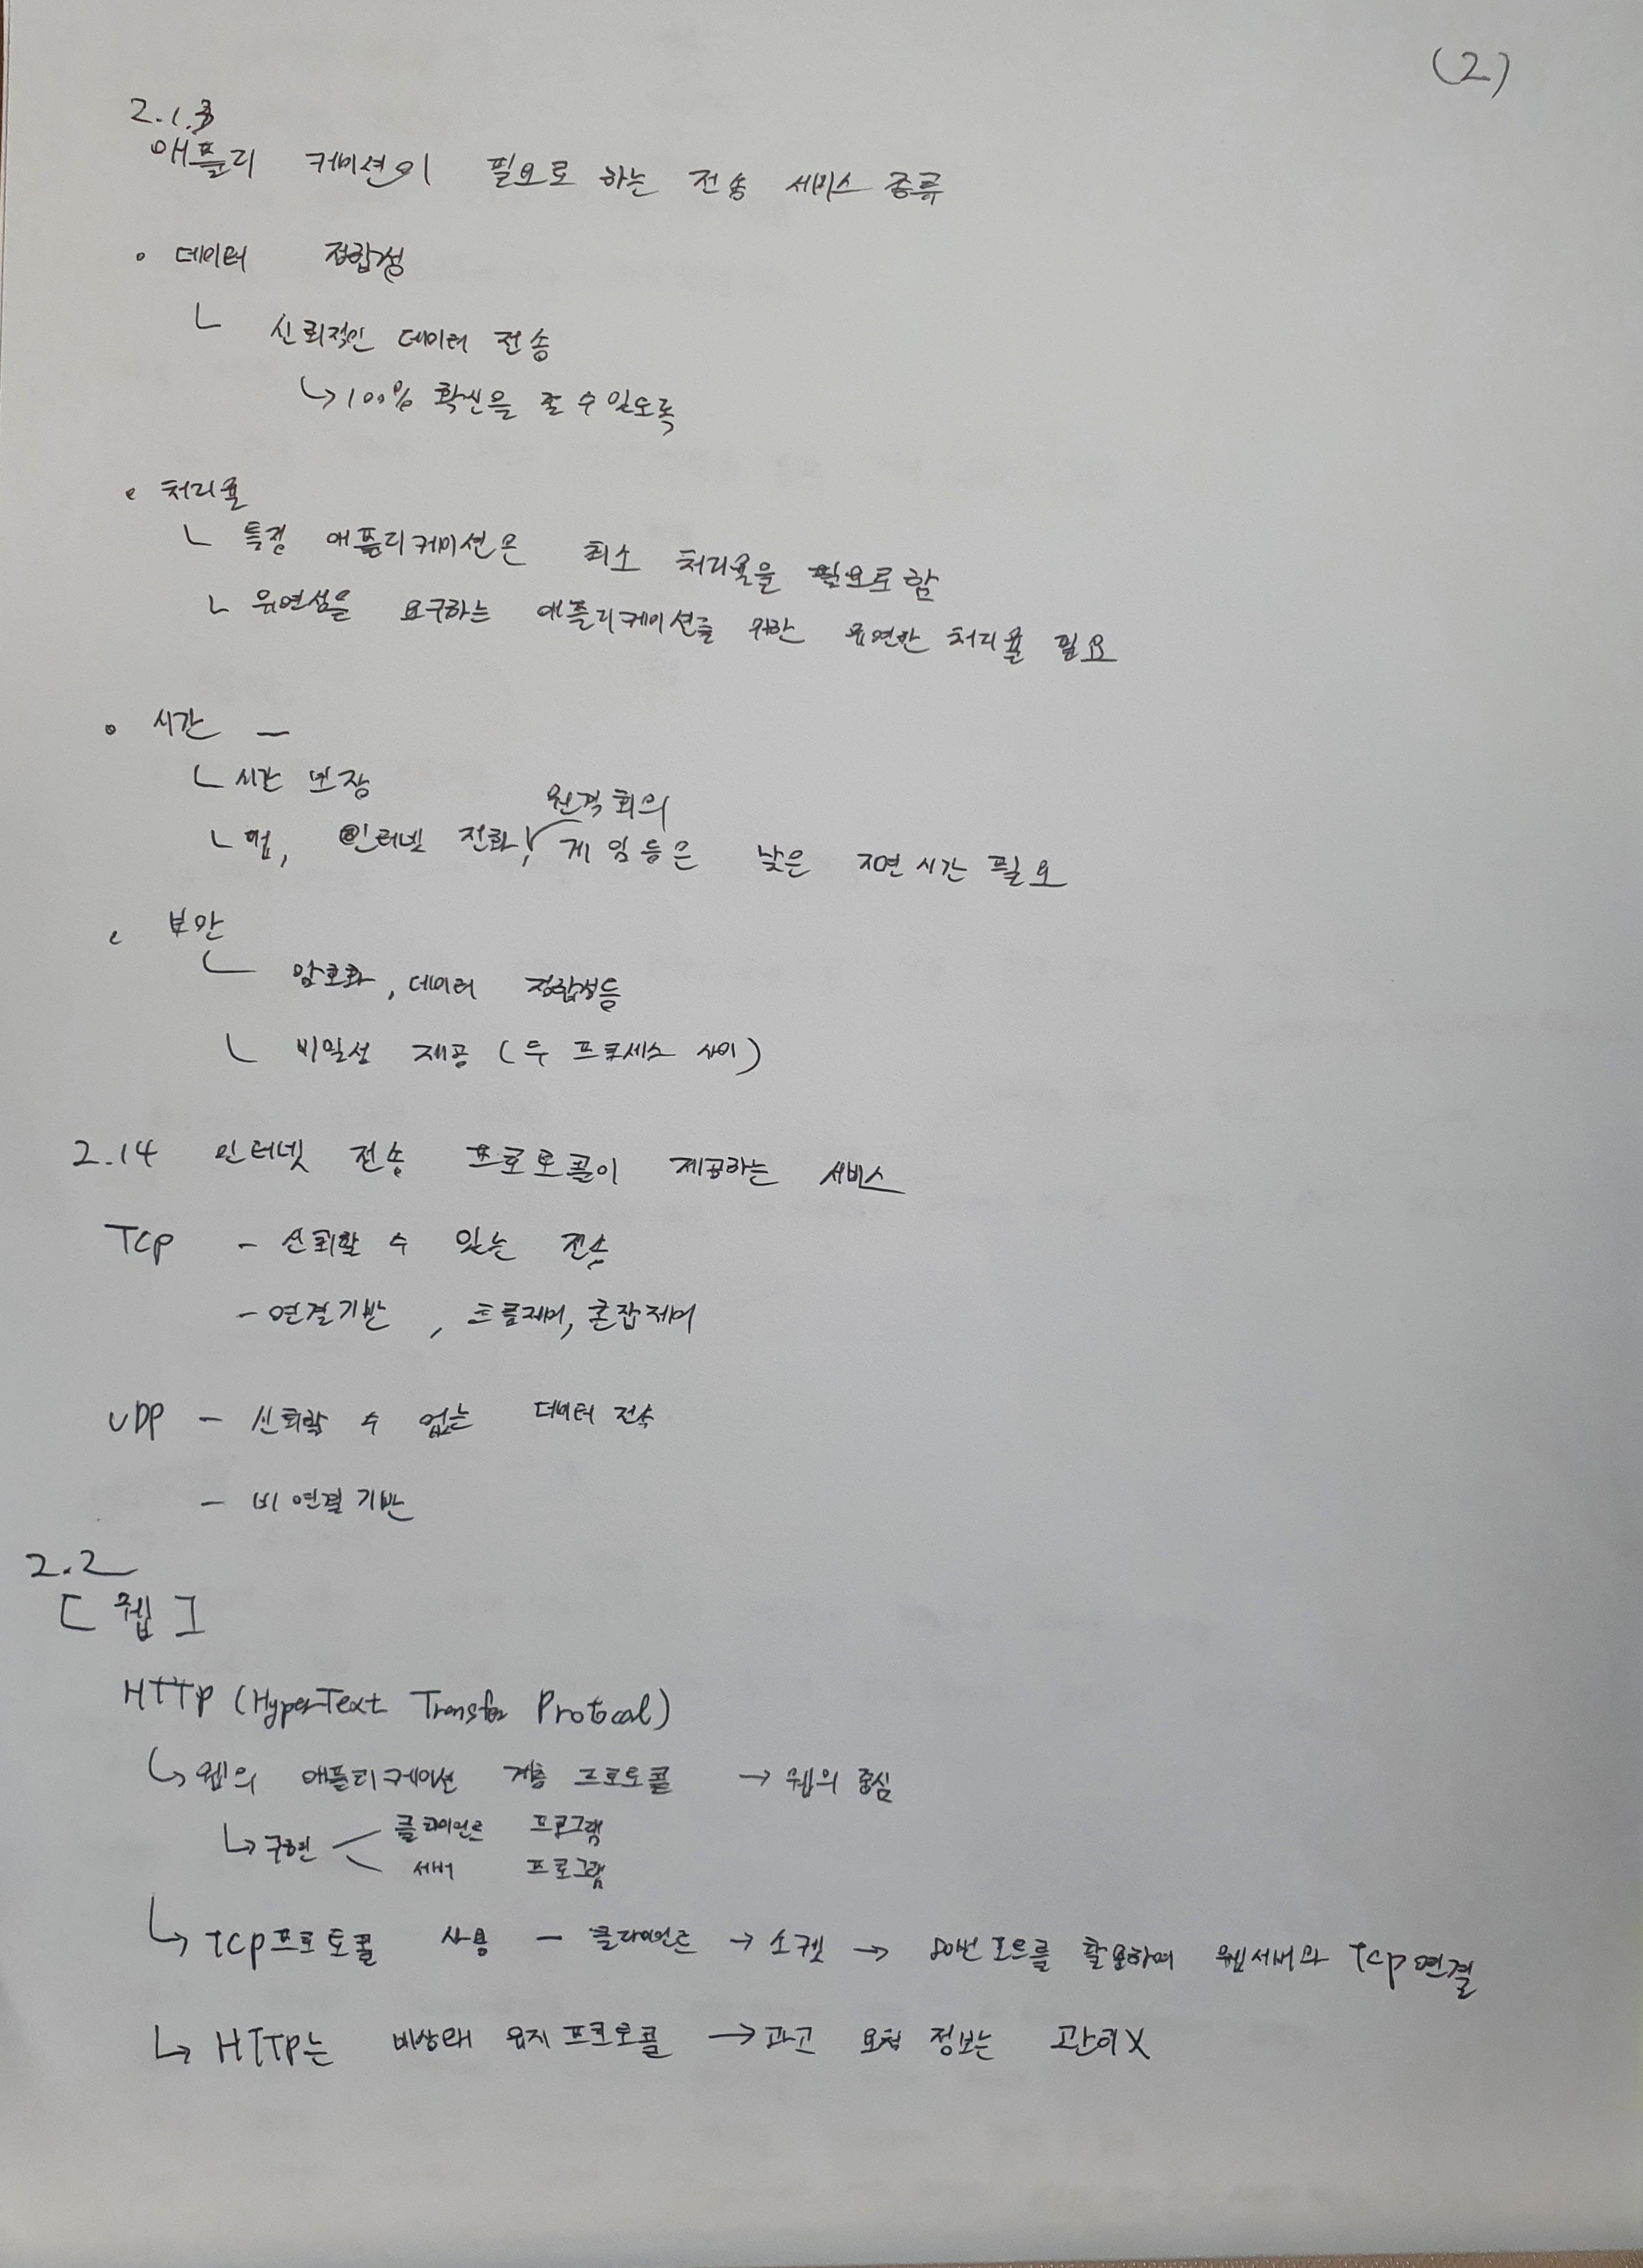 (2)
2.1.3
애플리 케이션이 필요로 하는 전송 서비스 종류
• 데이터 정합성
└ 신뢰적인 데이터 전송
↳ 100% 확신을 줄 수 있도록
• 처리율
└ 특정 애플리케이션은 최소 처리율을 필요로 함
└ 유연성을 요구하는 애플리케이션을 위한 유연한 처리율 필요
• 시간 -
└ 시간 보장
원격 회의
└ 인터넷 전화, 게임등은 낮은 지연시간 필요
• 보안
└ 암호화, 데이터 정합성등
└ 비밀성 제공 (두 프로세스 사이)
2.14 인터넷 전송 프로토콜이 제공하는 서비스
TCP - 신뢰할 수 있는 전송
- 연결기반, 흐름제어, 혼잡제어
UDP - 신뢰할 수 없는 데이터 전송
- 비 연결기반
2.2
[ 웹 ]
HTTP (HyperText Transfer Protocal)
↳ 웹의 애플리케이션 계층 프로토콜 → 웹의 중심
클라이언트 프로그램
↳ 구현 <
서버 프로그램
↳ TCP프로토콜 사용 - 클라이언트 → 소켓 → 80번 포트를 활용하여 웹서버와 TCP연결
↳ HTTP는 비상태 유지 프로토콜 → 과고 요청 정보는 고란여X